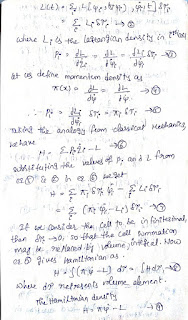 L(t) = Σ L_i (ψ_i, ... ψ̇_i, t) δτ_i
= Σ_i L_i δτ_i → ③
where L_i is the lagrangian density in i^th cell
P_i = ∂L/∂ψ̇_i = ∂L_i/∂ψ̇_i δτ_i → ④
Let us define momentum density as
π(x) = ∂L/∂ψ̇_i = ∂L/∂ψ̇ → ⑤
∴ P_i = ∂L/∂ψ̇_i δτ_i = π_i δτ_i → ⑥
Taking the analogy from classical Mechanics,
we have
H = Σ P_i ψ̇_i - L
substituting the values of P_i and L from
eq ⑥ & ③ in eq we get
H = Σ_i π_i δτ_i ψ̇_i - Σ_i L_i δτ_i
= Σ_i (π_i ψ̇_i - L_i) δτ_i
If we consider the cell to be infinitesimal,
then δτ_i → 0, so that the cell summation
may be replaced by volume integral. Now
eq gives Hamiltonian as
H = ∫ (πψ̇ - L) dτ = ∫ H dτ
where dτ represents volume element.
The Hamiltonian density
H = πψ̇ - L